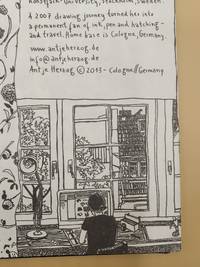 Konstfack-University, Stockholm, Sweden.
A 2007 drawing journey turned her into
a permanent fan of ink, pen and hatching -
and travel. Home base is Cologne, Germany.
www.antjeherzog.de
info@antjeherzog.de
Antje Herzog © 2013 - Cologne//Germany